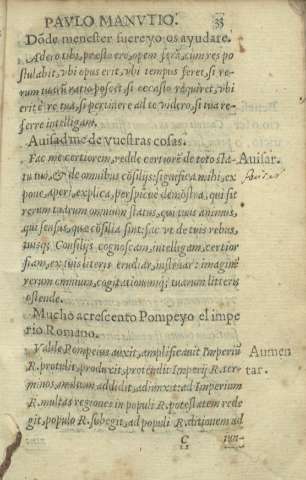 PAVLO MANVTIO. 33
Dōde menester fuere yo os ayudare.
Adero tibi, præsto ero, opem ferā, cum res po
stulabit, vbi opus erit, vbi tempus feret, si re-
rum tuarū ratio poscet, si occasio requiret, vbi
erit è re tua, si pertinere ad te videro, si tua re-
ferre intelligam.
Auisadme de vuestras cosas.
Fac me certiorem, redde certiorē de toto sta- Auisar.
tu tuo, & de omnibus cōsilijs: significa mihi, ex
pone, aperi, explica, perspicue demōstra, qui sit
rerum tuarum omnium status, qui tuus animus,
qui sensus, quæ cōsilia sint: fac vt de tuis rebus,
tuisq; Consilijs cognoscam, intelligam, certior
fiam, ex tuis literis erudiar, instruar: imaginē
rerum omnium, cogitationumq; tuarum litteris
ostende.
Mucho acrescento Pompeyo el impe
rio Romano.
Valde Pompeius auxit, amplificauit Imperiū Aumen
R. protulit, produxit, protendit Imperij R. ter- tar.
minos, multum addidit, adiunxit: ad Imperium
R. multas regiones in populi R. potestatem rede
git, populo R. subegit, ad populi R. ditionem ad
C iun-